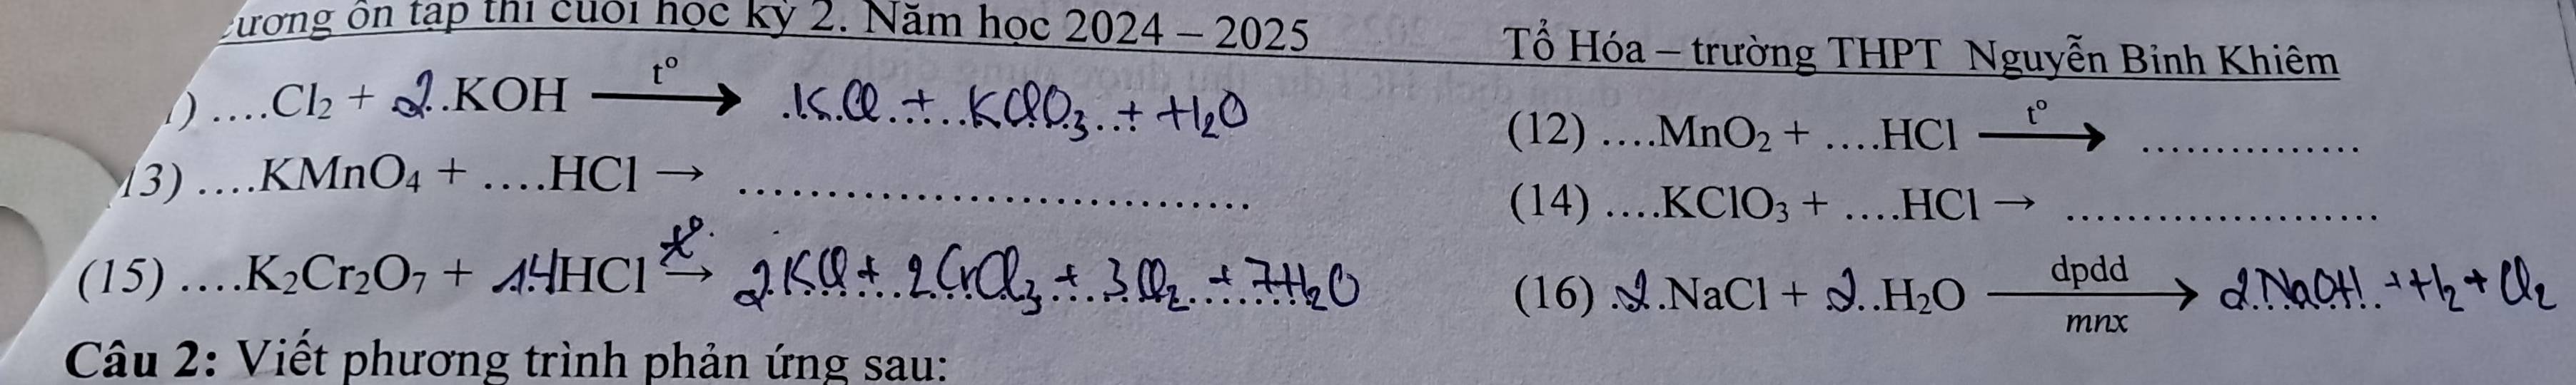 ương ôn tập thi cuối học kỳ 2. Năm học 2024 – 2025 Tổ Hóa – trường THPT Nguyễn Bỉnh Khiêm
1) ....Cl₂ + 2..KOH —t°→ .KCl..+...KClO₃..+ H₂O
(12) ....MnO₂ + ....HCl —t°→ ...............
13) ....KMnO₄ + ....HCl → .................................
(14) ....KClO₃ + ....HCl → ......................
(15) ....K₂Cr₂O₇ + 14HCl —t°→ 2KCl + 2CrCl₃ + 3Cl₂ + 7H₂O
(16) .2.NaCl + 2..H₂O —dpdd/mnx→ 2NaOH + H₂ + Cl₂
Câu 2: Viết phương trình phản ứng sau: